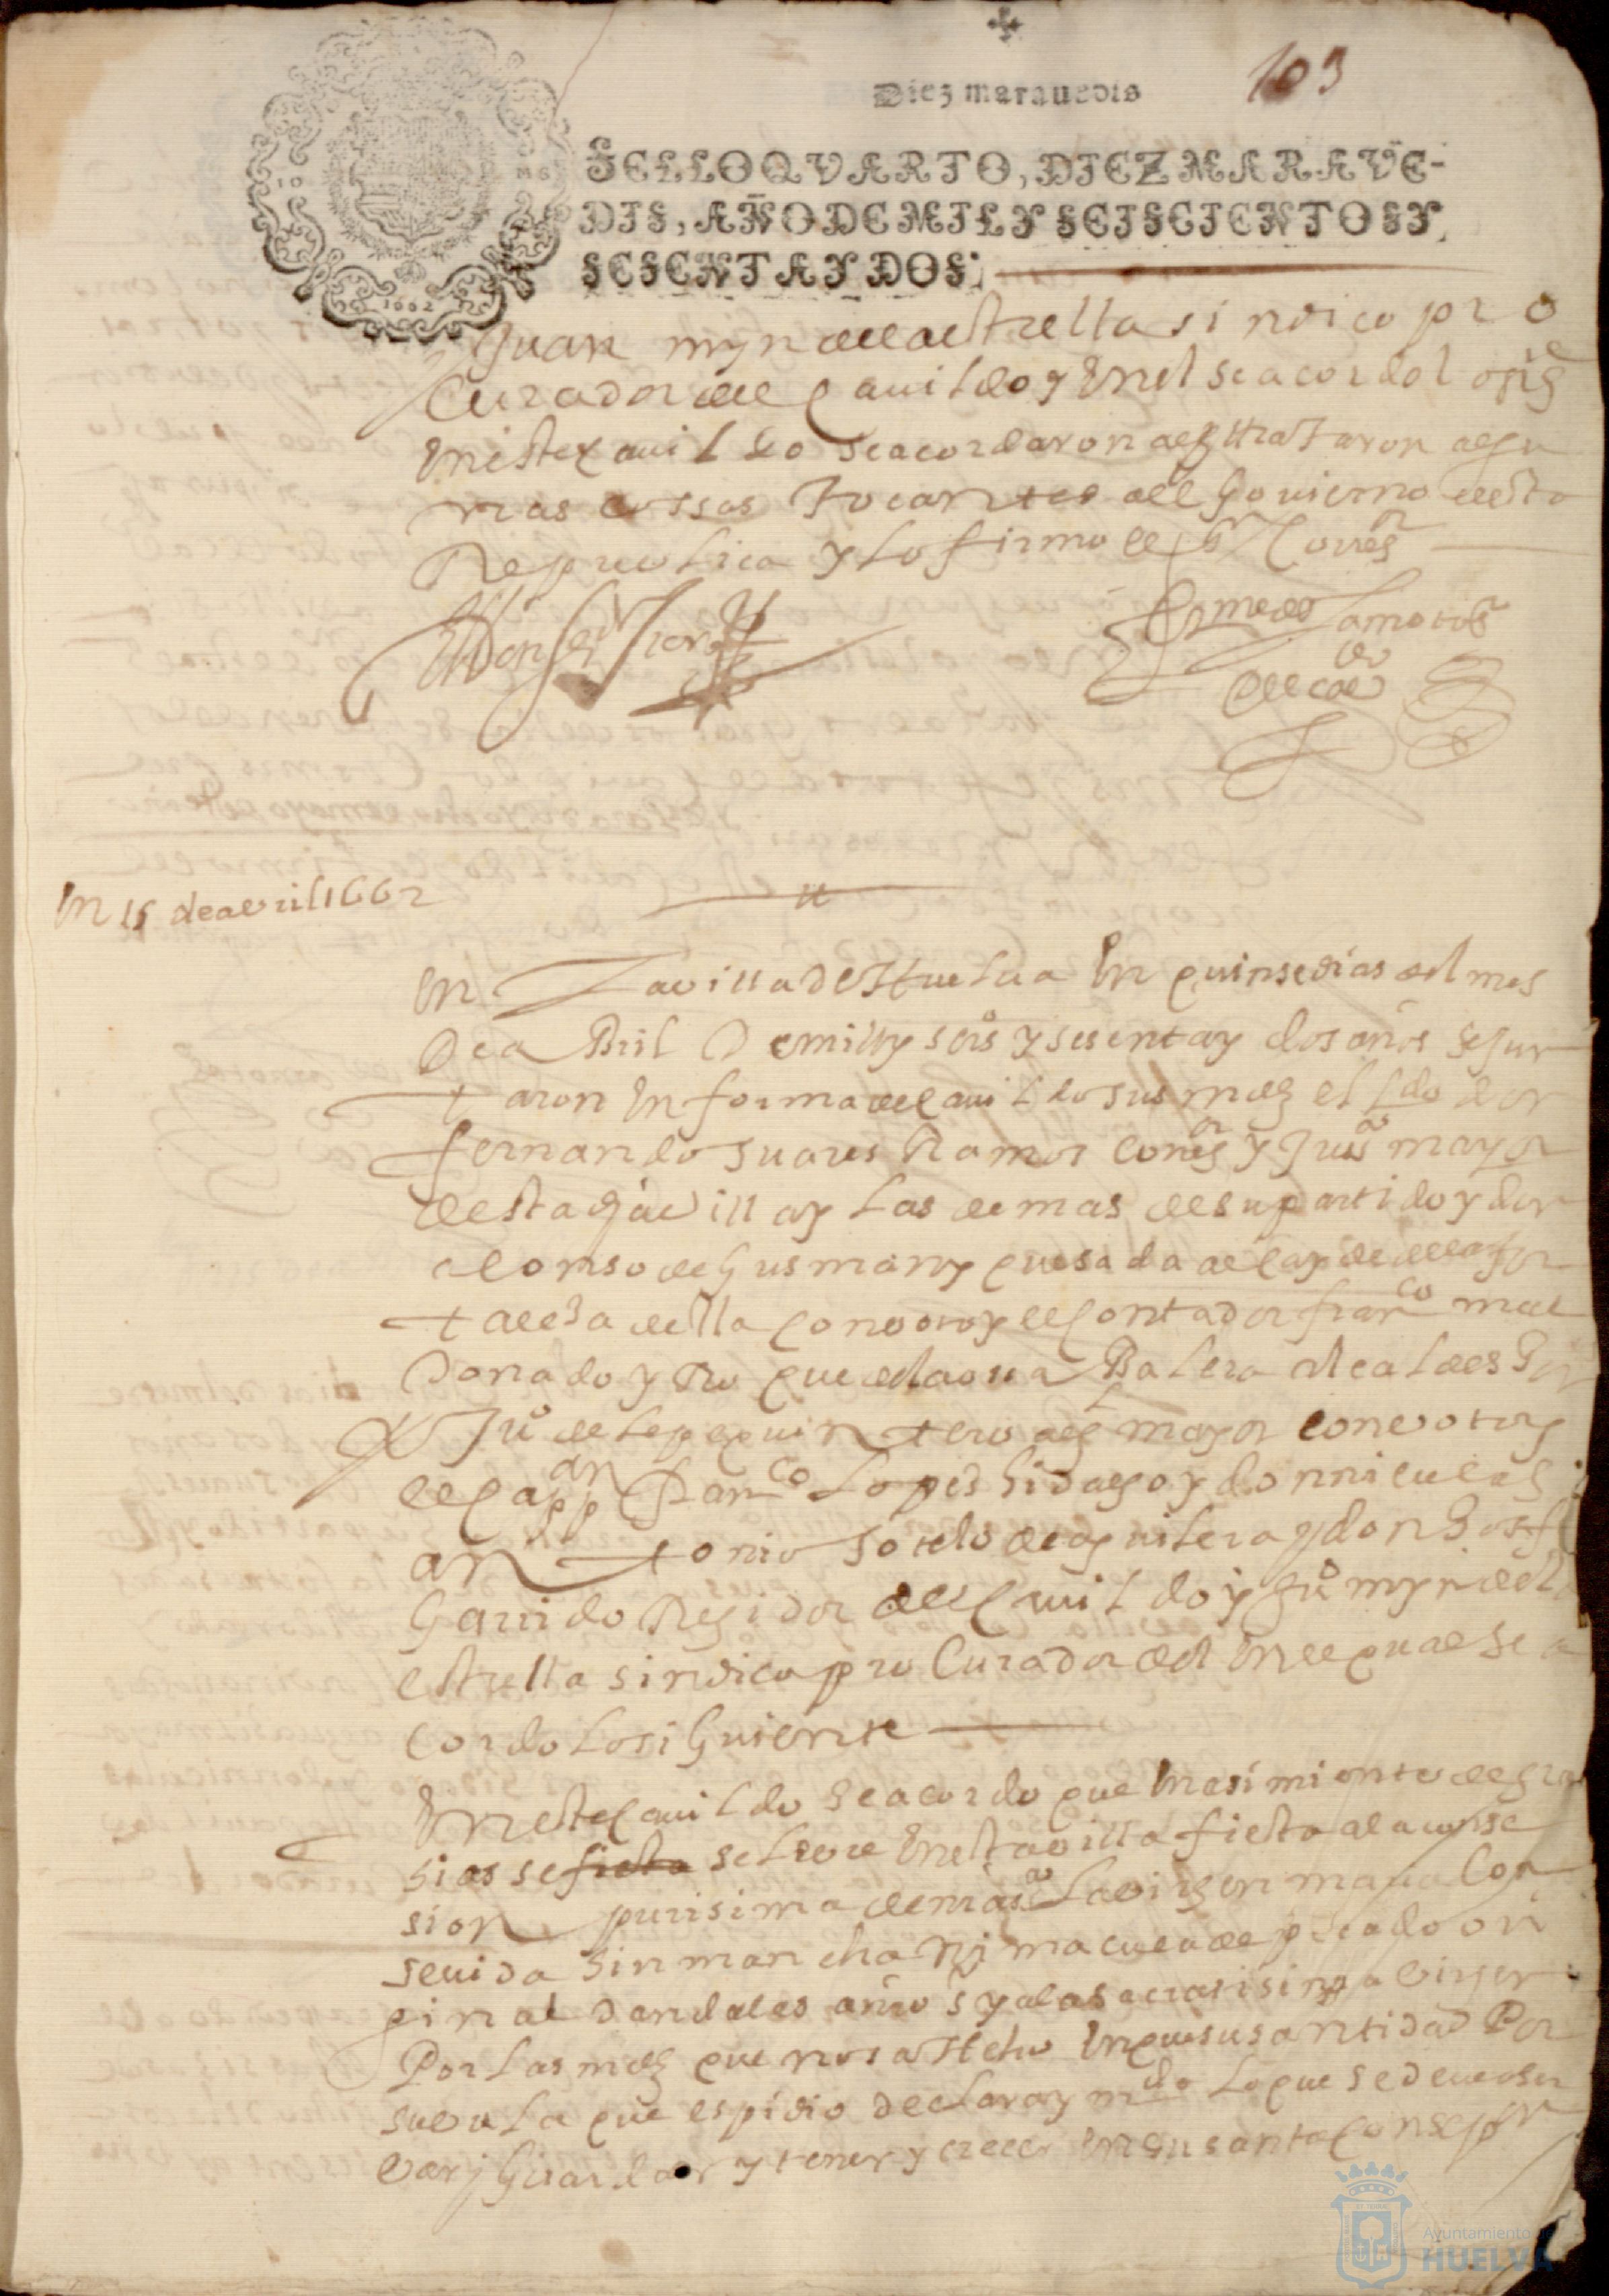 Diez marauedis
103
SELLO QVARTO, DIEZ MARAVE-
DIS, AÑO DE MIL Y SEISCIENTOS Y
SESENTA Y DOS.
1662
Juan mrn de la estrella sindico pro
Curador del Cauildo y En el se acordo lo sigte
En este Cauildo se acordaron trataron algu
nas cossas tocantes al Gouierno desta
Republica y lo firmo el sr Corregr
En 15 de abril 1662
En La villa de Huelua En quinse dias del mes
De a Bril De mill y seiso y sesenta y dos años se Jun
taron En forma de Cauildo sus mds el Ldo don
fernando suares Ramos correg y Jusa mayor
desta dha villa y las demas de su partido y don
alonso de Gusman y quesada alcayde de la for
talesa della con voto y el Contador franco mal
Donado y Ro que de la oua Balera Alcaldes
Juo de Lepe quintero alg mayor con voto y
el Cappan franco Lopes hidalgo y don niculas
antonio sotelo de aguilera y don
Garrido Regidor del Cauildo y Juo mrn de la
estrella sindico pro Curador del En el qual se a
Cordo Lo siGuiente
En este Cauildo se acordo que En asimiento de gra
sias se fiesta se Leue En esta villa fiesta a la conse
sion purisima de nra sa La virgen maria Con
seuida sin mancha ni macula de pecado ori
ginal dandales a nro sr y a la sacratisima virgen
Por las mds que nos a Hecho En que su santidad Por
su bula que espidio declara y mdo Lo que se deue obser
bar y Guardar y tener y creer En su santa Consepsn
Ayuntamiento de
HUELVA